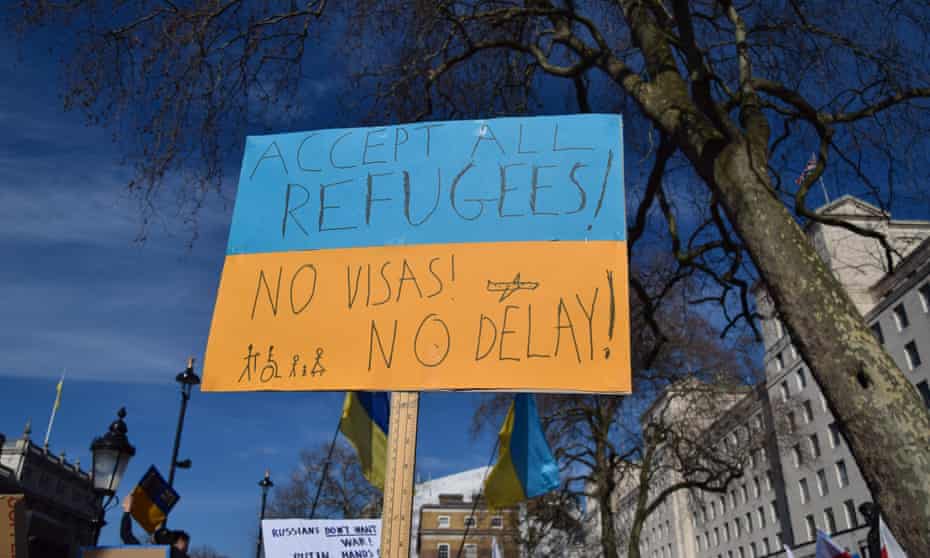 ACCEPT ALL
REFUGEES!
NO VISAS!
NO DELAY!
RUSSIANS DON'T WANT
WAR!